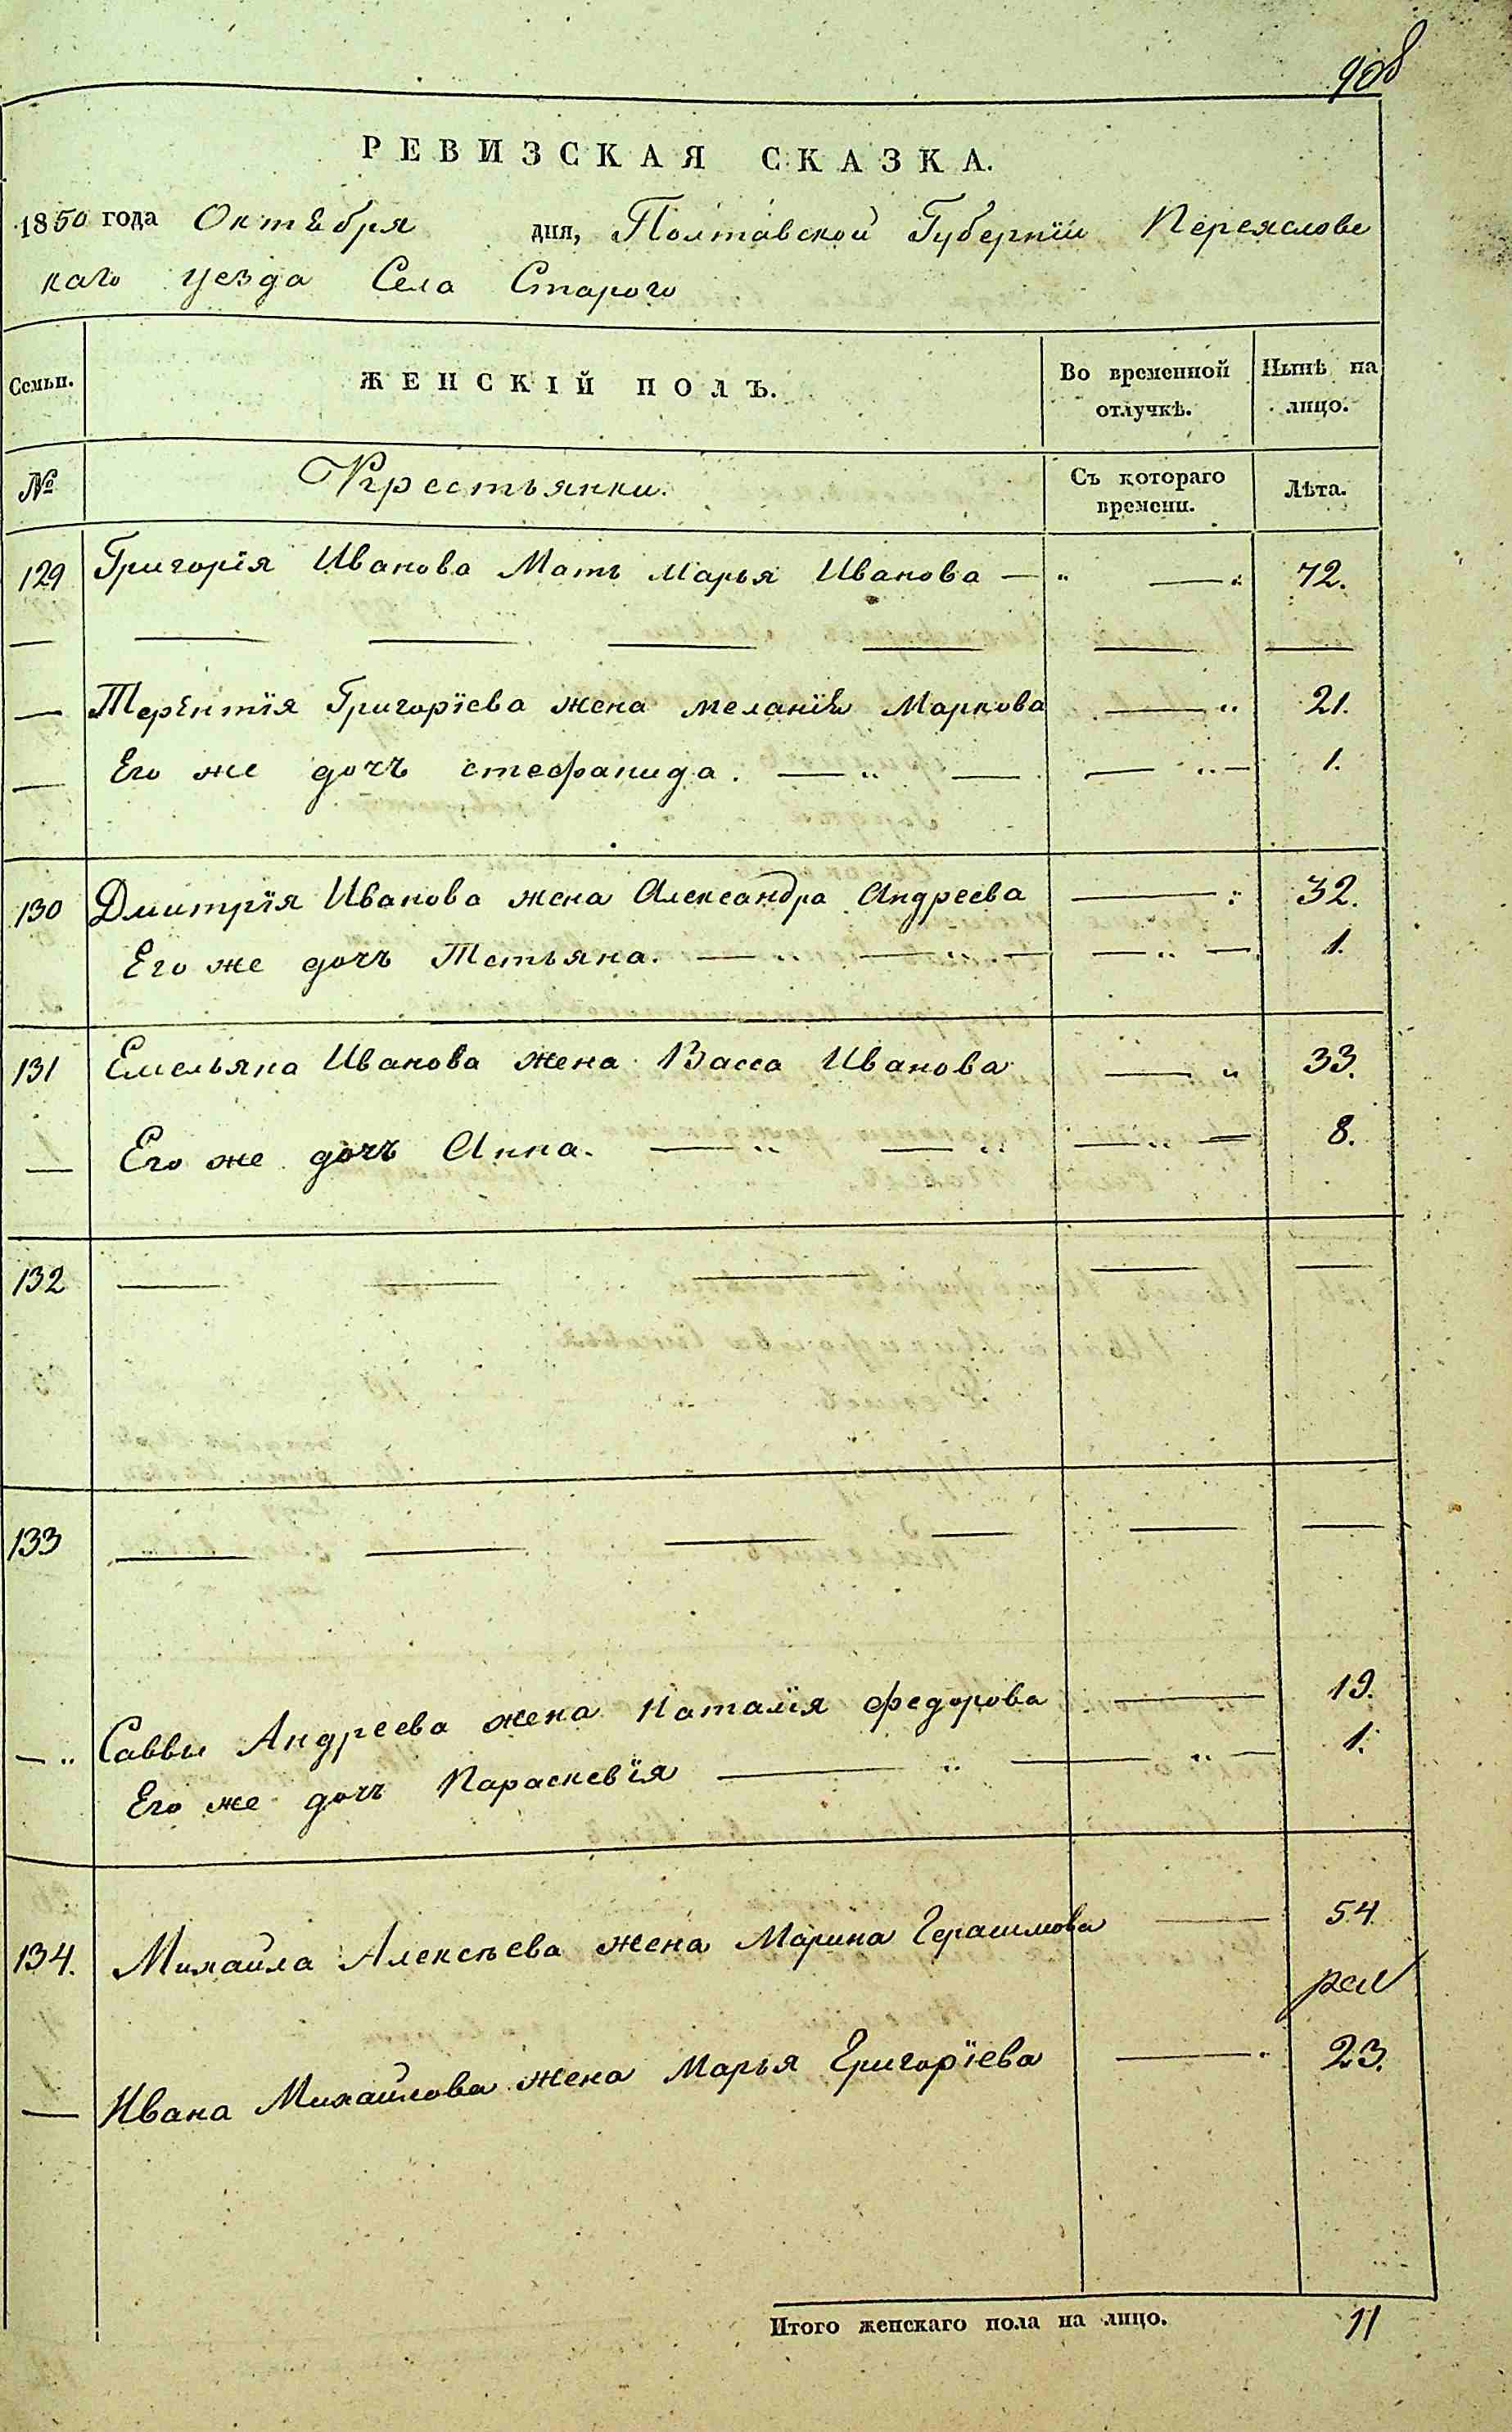 908
РЕВИЗСКАЯ СКАЗКА.
1850 года Октября дня, Полтавской Губернїи Переяслов
каго уезда Села Старого
Семьи. ЖЕНСКІЙ ПОЛЪ. Во временной отлучкѣ. Нынѣ на лицо.
№ Крестьянки. Съ котораго времени. Лѣта.
129 Григорїя Иванова Мать Марья Иванова — " — " 72.
— — — — — — —
— Терентїя Григорїева жена меланїя Маркова — " 21.
— Его же дочъ стефанида. — " — — " — 1.
130 Дмитрїя Иванова жена Александра Андреева — " 32.
Его же дочъ Тетьяна. — " — " — — " — 1.
131 Емельяна Иванова жена Васса Иванова — " 33.
— Его же дочъ Анна. — " — " — " — 8.
132 — — — — —
133 — — — — — —
— " Саввы Андреева жена Наталїя федорова — 19.
Его же дочъ Параскевїя — " — — " — 1.
134. Михаила Алексѣева жена Марина Герасимова — 54
— Ивана Михаилова жена Марья Григорїева — " 23.
Итого женскаго пола на лицо. 11